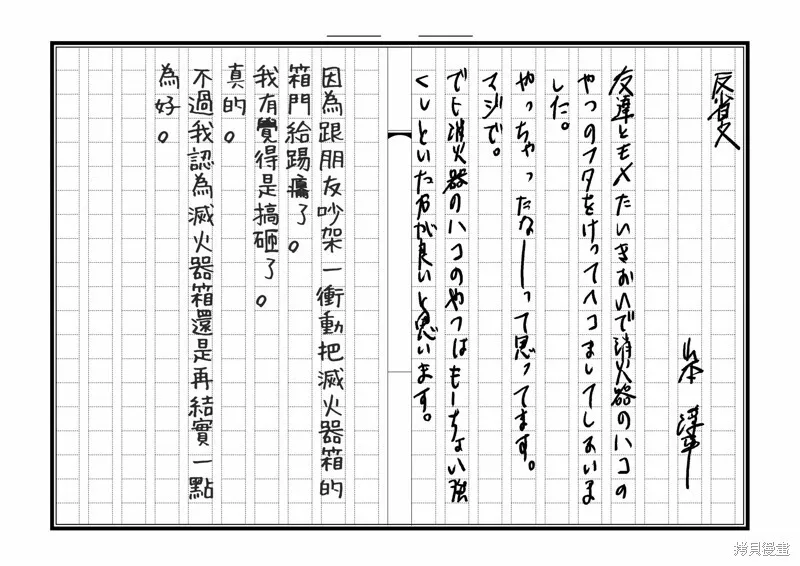 反省文
山本 淳一
友達とモメたいきおいで消火器のハコの
やつのフタをけってヘコましてしまいま
した。
やっちゃったなーーって思ってます。
マジで。
でも消火器のハコのやつはもーちょい強
くしといた方が良いと思います。
因為跟朋友吵架一衝動把滅火器箱的
箱門給踢癟了。
我有覺得是搞砸了。
真的。
不過我認為滅火器箱還是再結實一點
為好。
拷貝漫畫